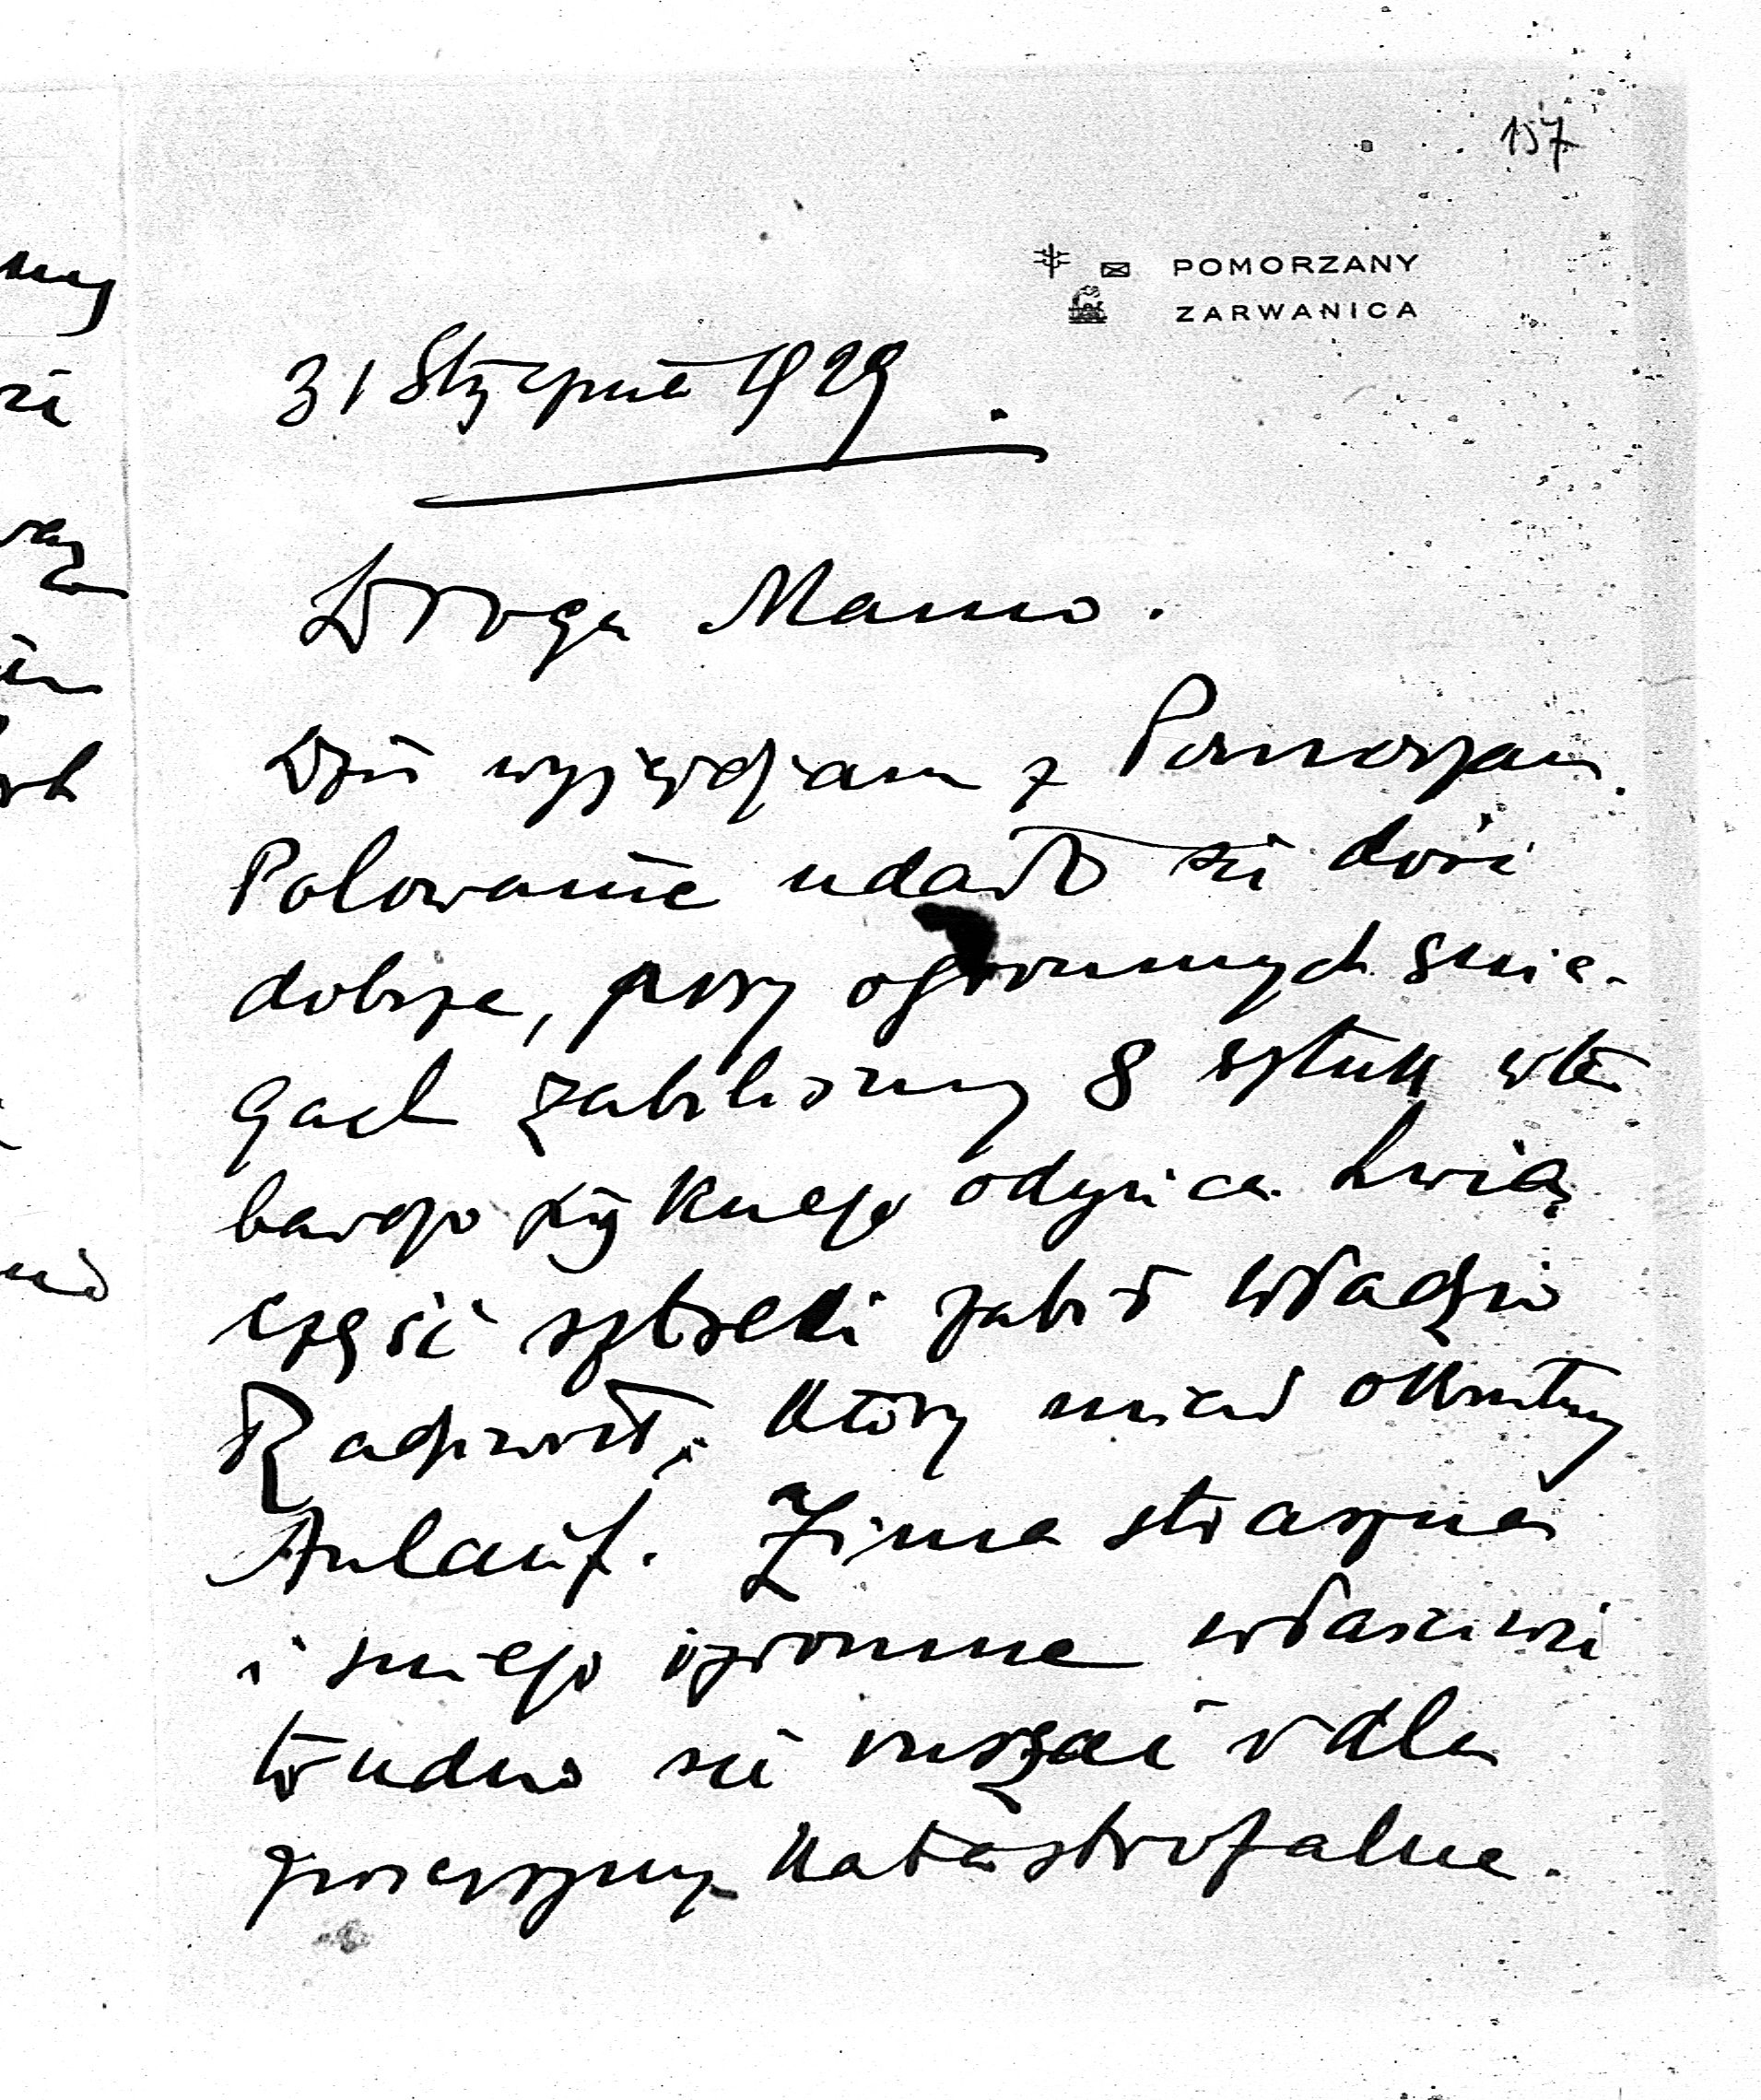 157
POMORZANY
ZARWANICA
31 Stycznia 1929.
Droga Mamo.
Dziś wyjeżdżam z Pomorzan.
Polowanie udało się dość
dobrze, przy ogromnych śnie-
gach zabiliśmy 8 sztuk w tem
bardzo pięknego odyńca. Lwią
część zabił Władzio
Radziwiłł, który miał okrutny
Anlauf. Zima straszna
i śniegi ogromne właściwie
trudno się ruszać i dla
zwierzyny katastrofalne.